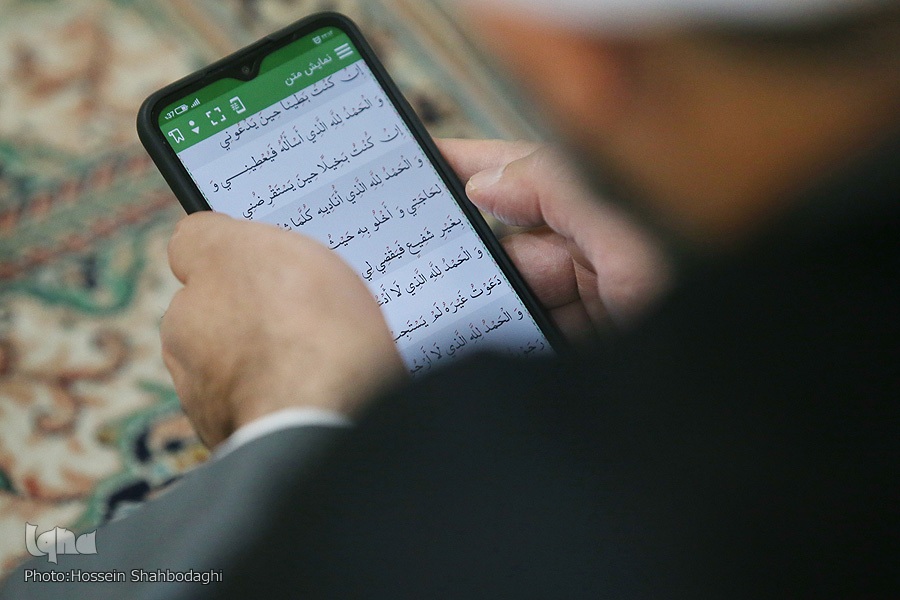 37
نمایش متن
إِنْ كُنْتُ بَطِيئاً حِينَ يَدْعُونِي
وَ الْحَمْدُ لِلَّهِ الَّذِي أَسْأَلُهُ فَيُعْطِينِي وَ
إِنْ كُنْتُ بَخِيلًا حِينَ يَسْتَقْرِضُنِي
وَ الْحَمْدُ لِلَّهِ الَّذِي أُنَادِيهِ كُلَّمَا
لِحَاجَتِي وَ أَخْلُو بِهِ حَيْثُ
بِغَيْرِ شَفِيعٍ فَيَقْضِي لِي
وَ الْحَمْدُ لِلَّهِ الَّذِي لَا
دَعَوْتُ غَيْرَهُ لَمْ يَسْتَجِبْ
وَ الْحَمْدُ لِلَّهِ الَّذِي لَا
iqna
Photo:Hossein Shahbodaghi